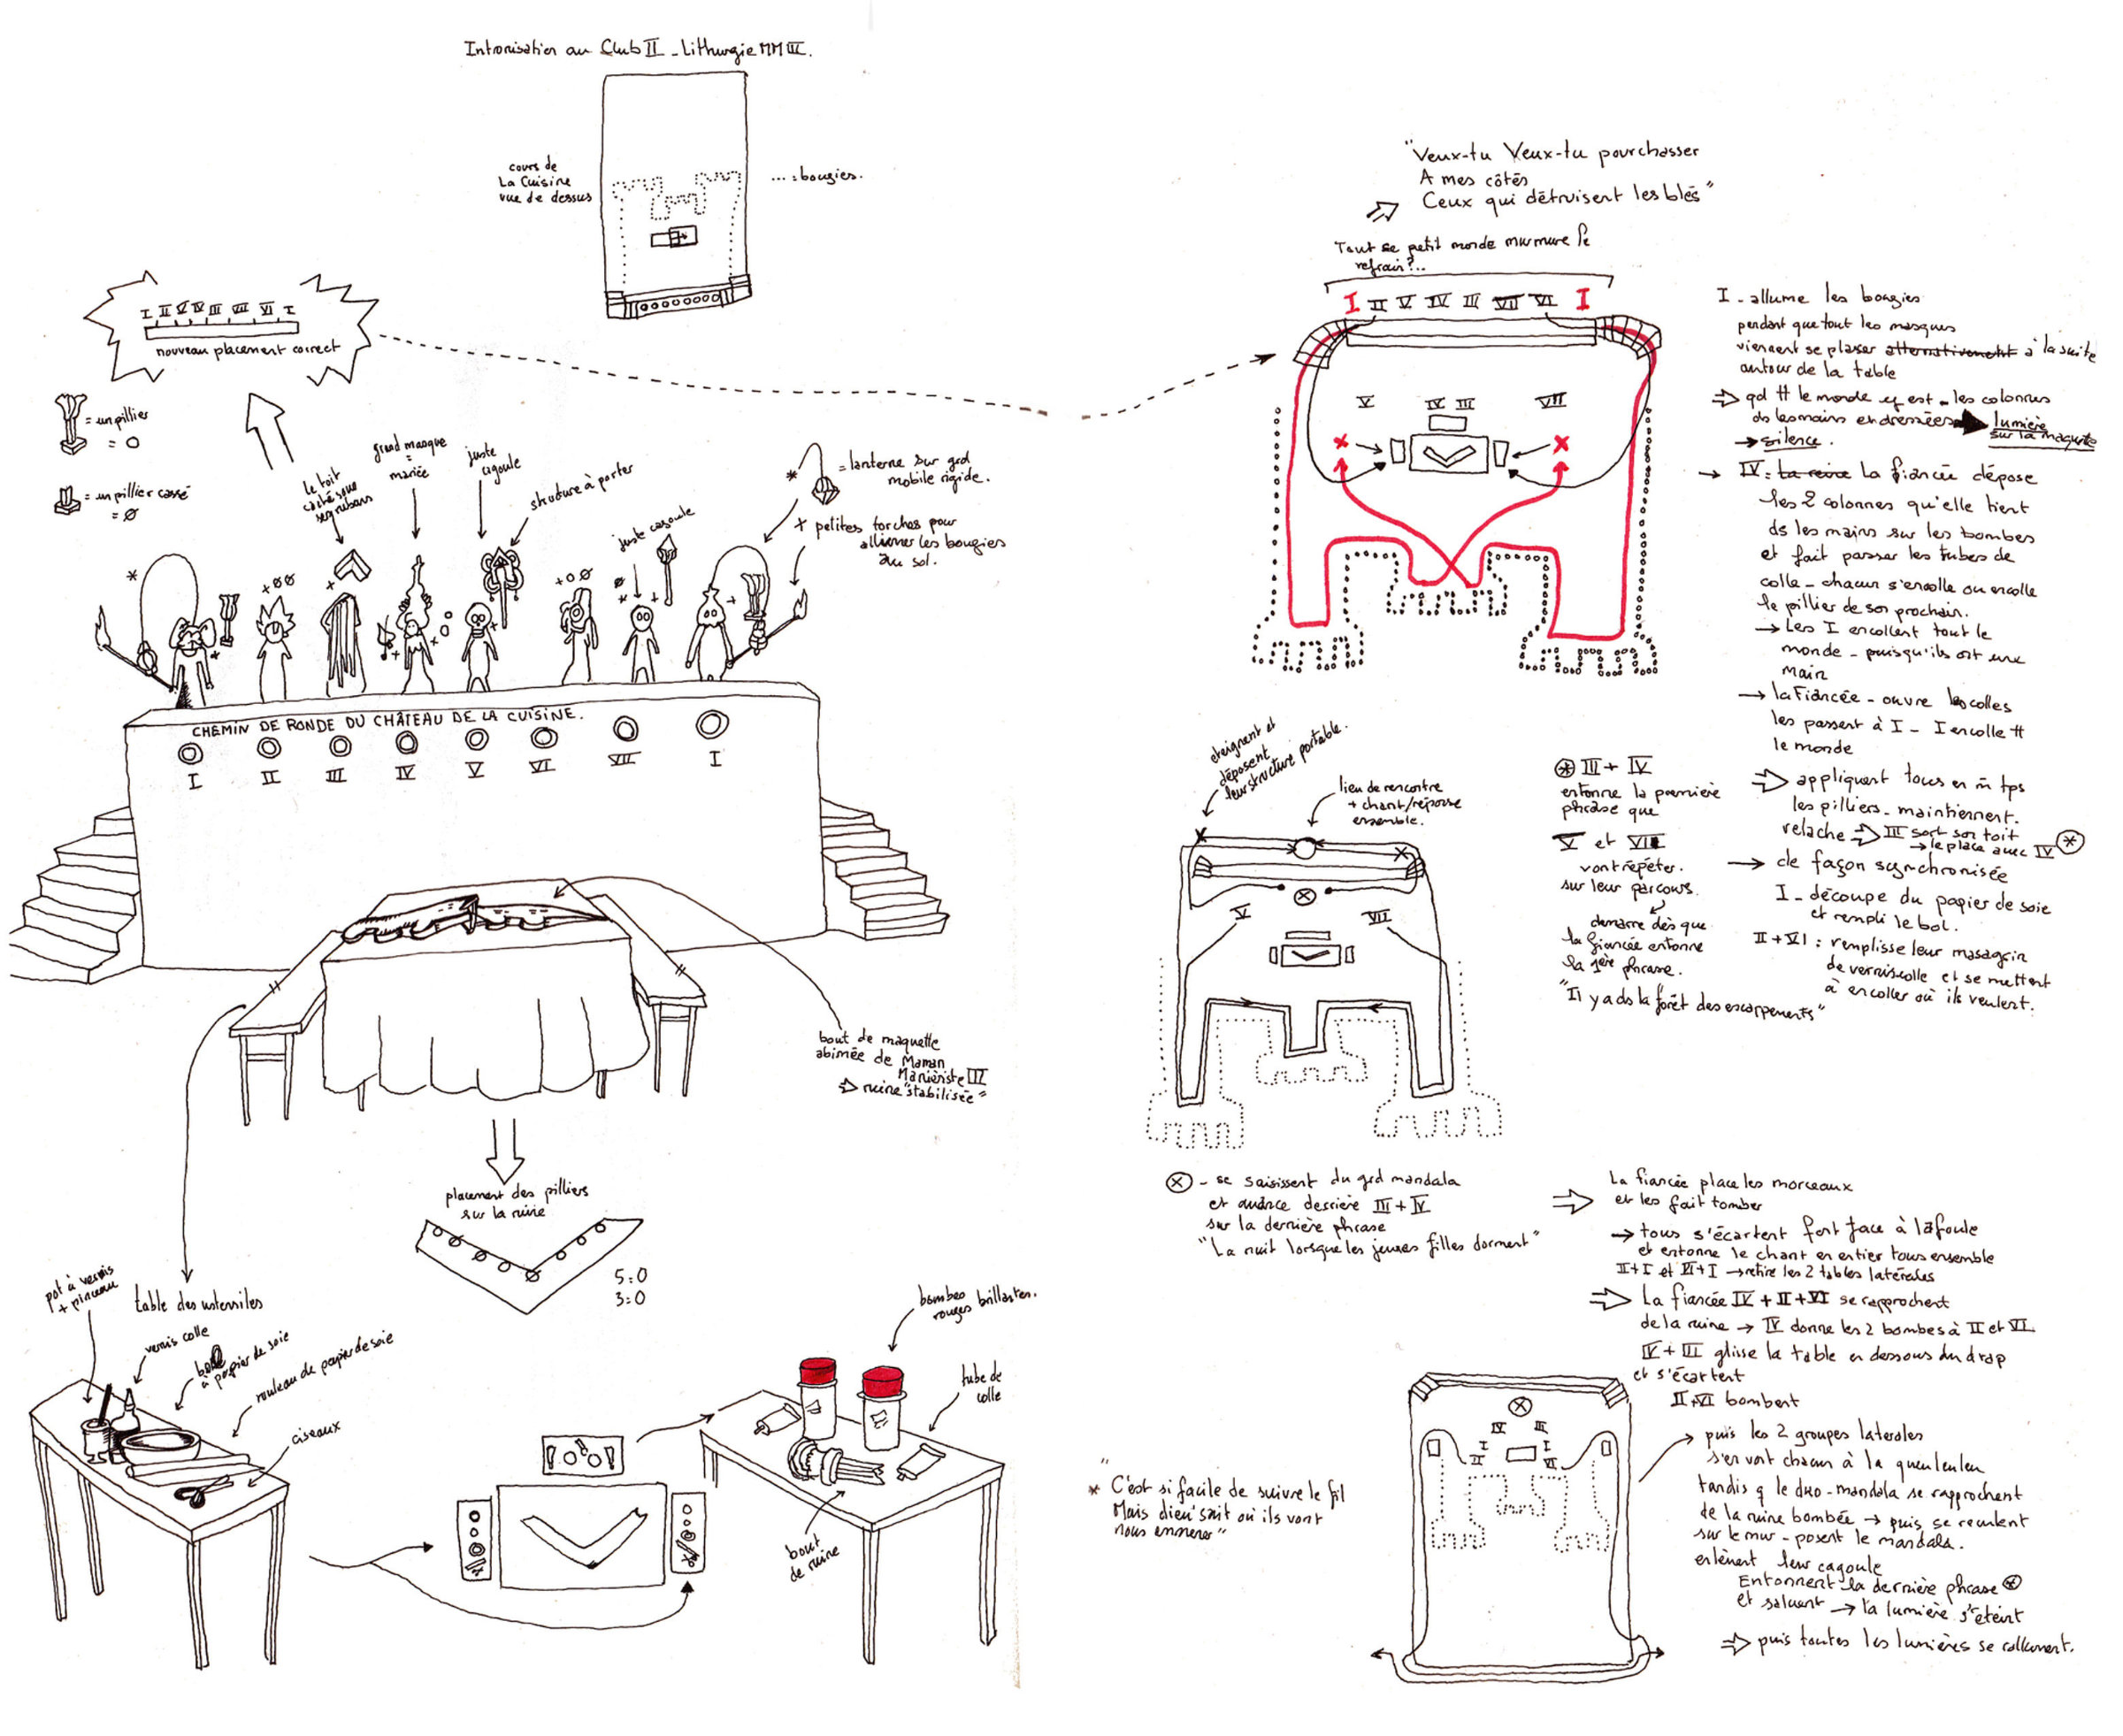 Intronisation au Club II - Lithurgie MM III.
cours de
La Cuisine
vue de dessus
... : bougies.
I II V IV III VII VI I
nouveau placement correct
= un pillier
= O
= un pillier cassé
= Ø
le toit
caché sous
ses rubans
grand masque
=
mariée
juste
cagoule
structure à porter
juste cagoule
* = lanterne sur grd
mobile rigide.
+ petites torches pour
allumer les bougies
au sol.
*
+ØØ
+OØ
CHEMIN DE RONDE DU CHÂTEAU DE LA CUISINE.
I II III IV V VI VII I
bout de maquette
abimée de Maman
Maniériste III
⇒ ruine "stabilisée"
placement des pilliers
sur la ruine
5:O
3:O
pot à vernis
+ pinceau
table des ustensiles
vernis colle
bol
à papier de soie
rouleau de papier de soie
ciseaux
bombes
rouges brillantes.
tube de
colle
bout
de ruine
"Veux-tu Veux-tu pourchasser
A mes côtés
Ceux qui détruisent les blés"
Tout se petit monde murmure le
refrain?...
I II V IV III VII VI I
V IV III VII
I - allume les bougies
pendant que tout les masques
viennent se placer alternativement à la suite
autour de la table
⇒ qd tt le monde y est - les colonnes
ds les mains en dressées lumière
sur la maquette
→ silence.
→ IV: la reine La fiancée dépose
les 2 colonnes qu'elle tient
ds les mains sur les bombes
et fait passer les tubes de
colle - chacun s'encolle ou encolle
le pillier de son prochain.
→ Les I encollent tout le
monde - puisqu'ils ont une
main
→ la Fiancée - ouvre les colles
les passent à I - I encolle tt
le monde
⇒ appliquent tous en m tps
les pilliers - maintiennent.
relache ⇒ III sort son toit
→ le place avec IV *
→ de façon synchronisée
I - découpe du papier de soie
et rempli le bol.
II + VI : remplisse leur masagrin
de vernis colle et se mettent
à encoller où ils veulent.
éteignent et
déposent
leur structure portable.
lieu de rencontre
+ chant/réponse
ensemble.
V VII
* III + IV
entonne la première
phrase que
V et VII
vont répéter.
sur leur parcours.
demarre dès que
la fiancée entonne
la 1ère phrase.
"Il y a ds la forêt des escarpements"
⊗ - se saisissent du grd mandala
et avance derrière III + IV
sur la dernière phrase
"La nuit lorsque les jeunes filles dorment"
⇒ La fiancée place les morceaux
et les fait tomber
→ tous s'écartent font face à la foule
et entonne le chant en entier tous ensemble
II+I et VI+I → retire les 2 tables latérales
⇒ La fiancée IV + II + VI se rapprochent
de la ruine → IV donne les 2 bombes à II et VI
IV + III glisse la table en dessous du drap
et s'écartent
II, VI bombent
→ puis les 2 groupes laterales
s'en vont chacun à la queuleuleu
tandis q le duo-mandala se rapprochent
de la ruine bombée → puis se reculent
sur le mur - posent le mandala.
enlèvent leur cagoule
Entonnent la dernière phrase *
et saluent → la lumière s'eteint
⇒ puis toutes les lumières se rallument.
IV III
I I
II VI
"
* C'est si facile de suivre le fil
Mais dieu sait où ils vont
nous emmener"